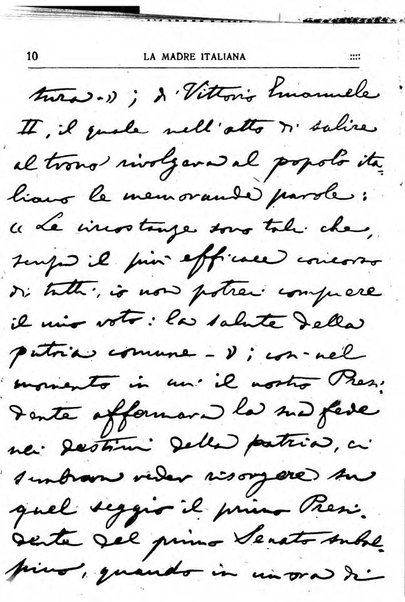 10 LA MADRE ITALIANA
tura -» ; di Vittorio Emanuele
II, il quale nell'atto di salire
al trono rivolgeva al popolo ita-
liano le memorande parole :
« Le circostanze sono tali che,
senza il più efficace concorso
di tutti, io non potrei compiere
il mio voto : la salute della
patria comune -» ; così nel
momento in cui il nostro Presi-
dente affermava la sua fede
nei destini della patria, ci
sembrava veder risorgere su
quel seggio il primo Presi-
dente del primo Senato subal-
pino, quando in un'ora di